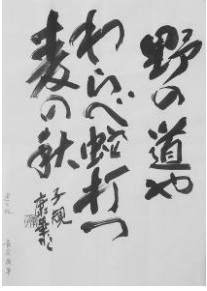 野の道や
わらべ蛇打つ
麦の秋
子規